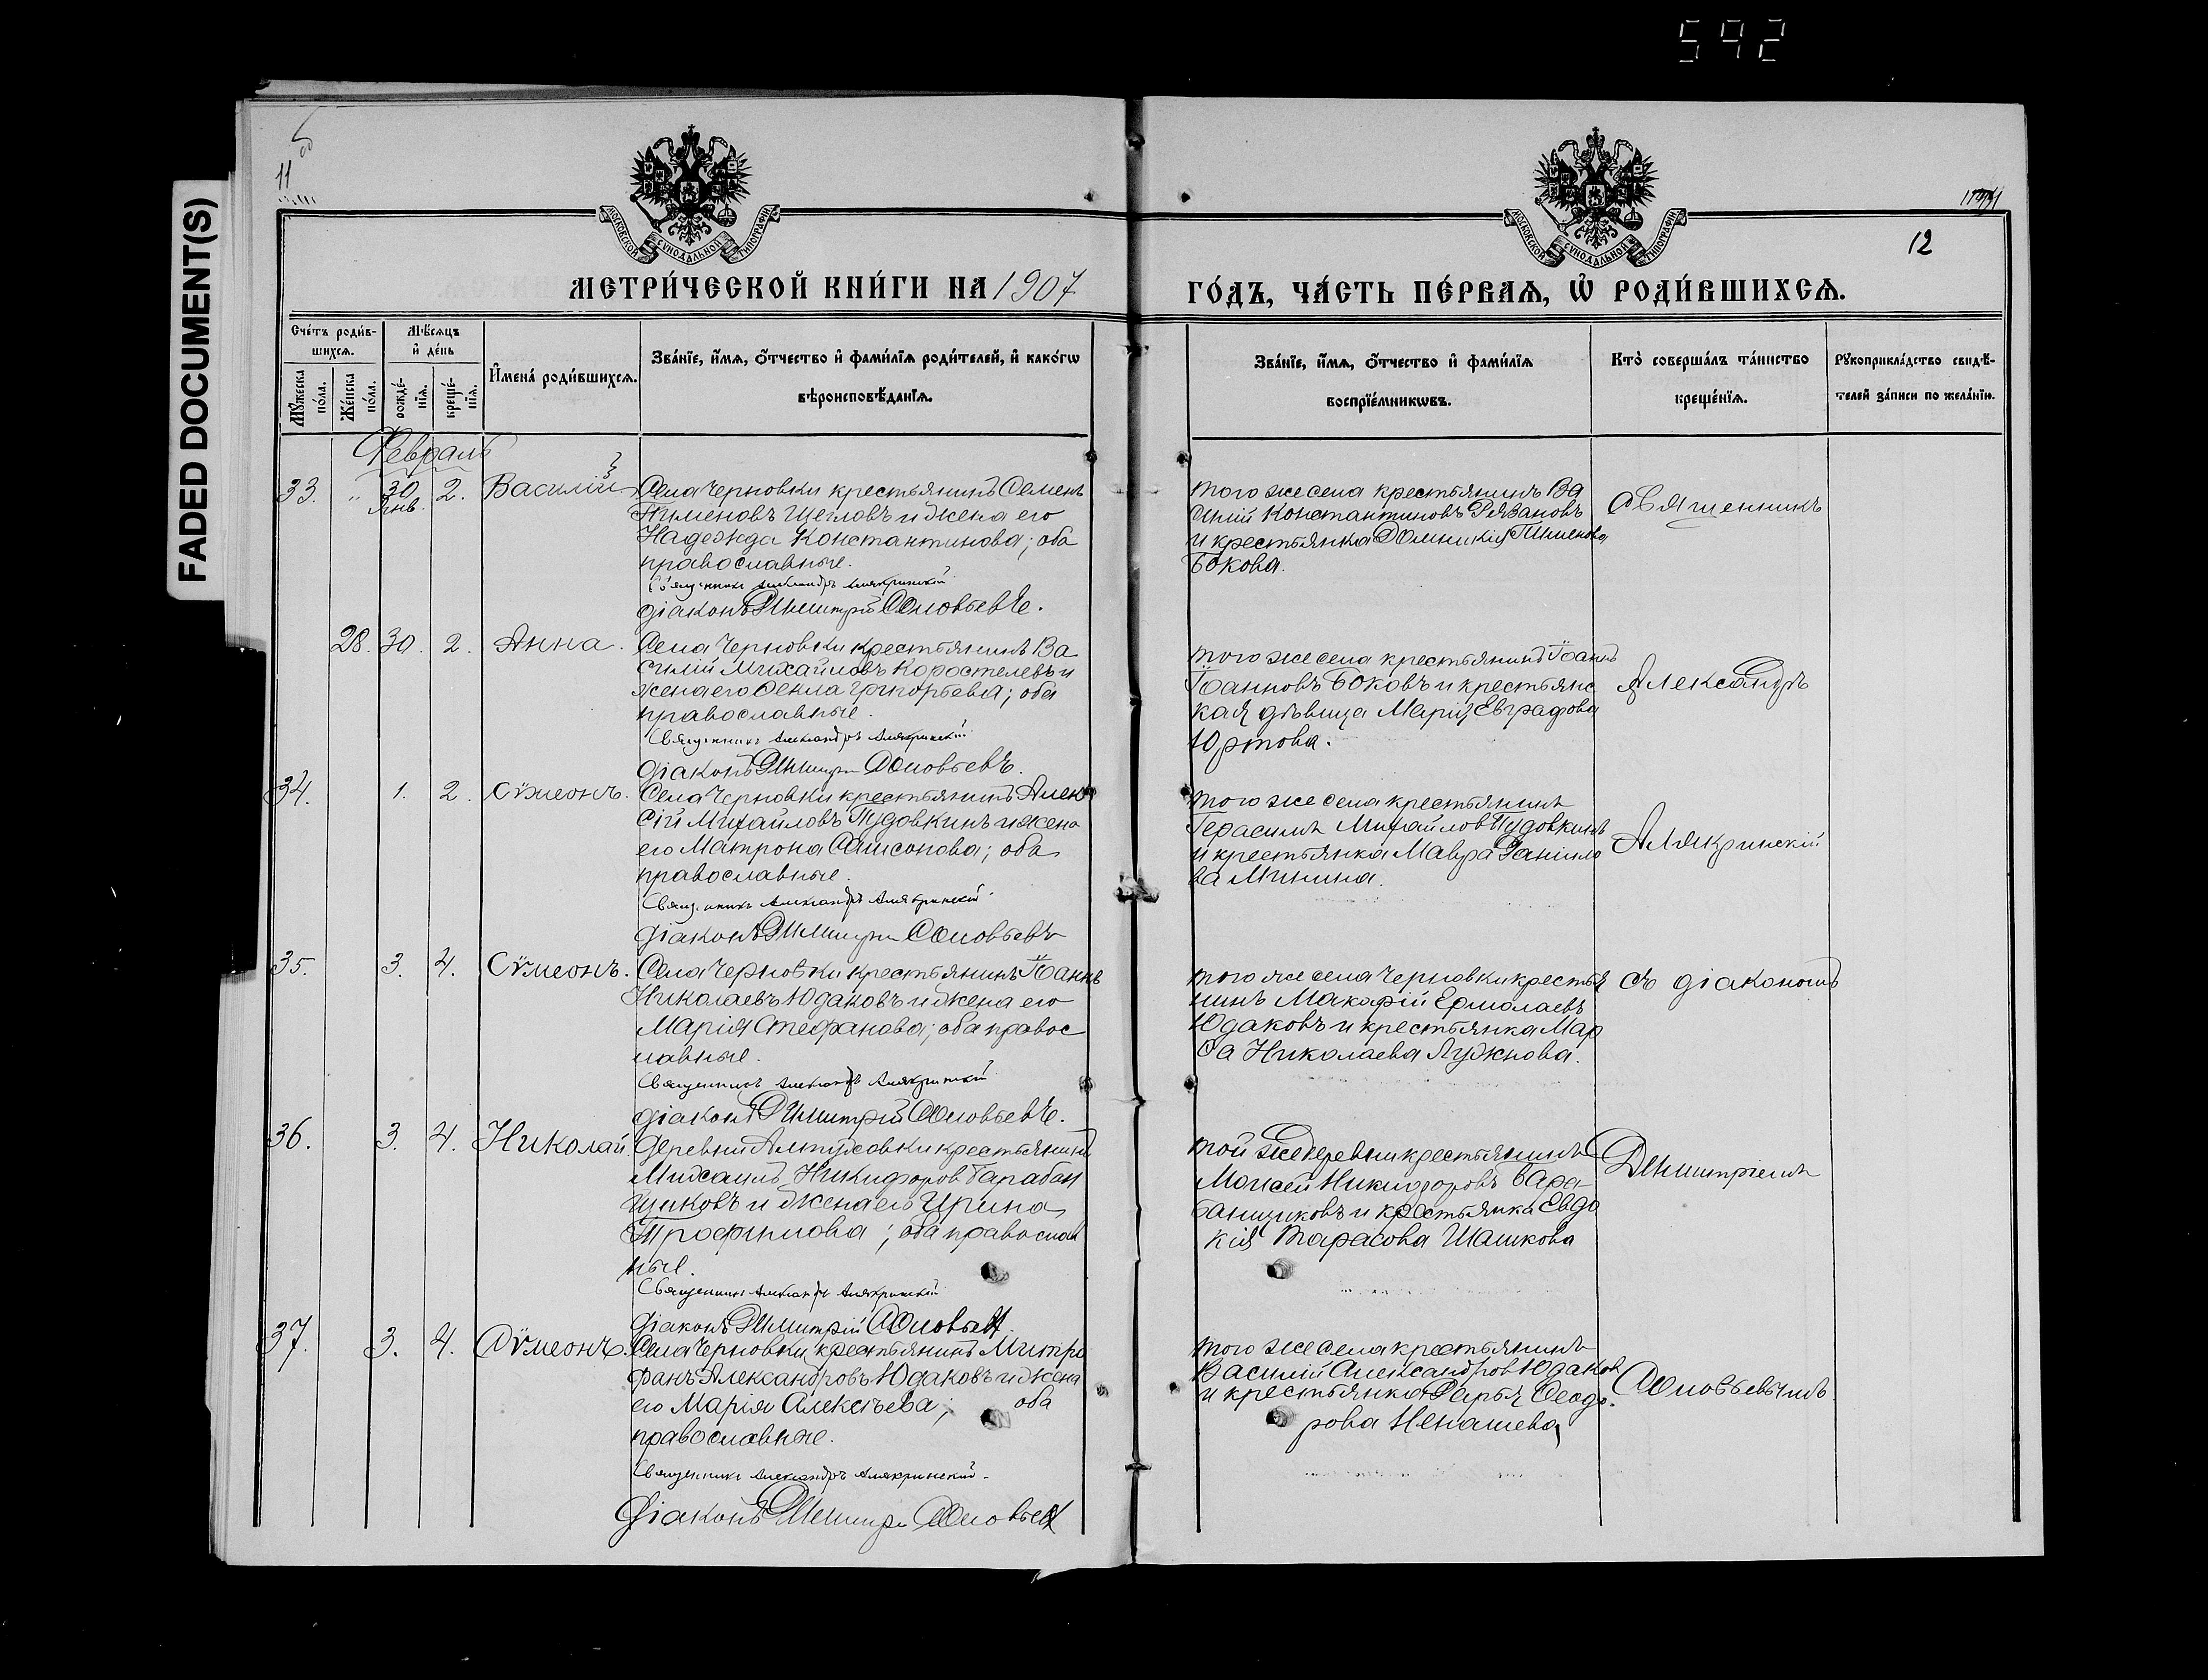 592
FADED DOCUMENT(S)
11
12
МОСКОВСКОЙ СУНОДАЛЬНОЙ ТИПОГРАФІИ
МОСКОВСКОЙ СУНОДАЛЬНОЙ ТИПОГРАФІИ
МЕТРИ́ЧЕСКОЙ КНИ́ГИ НА 1907
ГО́ДЪ, ЧА́СТЬ ПЕ́РВАѦ, Ѡ҆ РОДИ́ВШИХСѦ.
Сче́тъ роди́в-
шихсѧ.
Мꙋжеска по́ла.
Же́нска по́ла.
Мѣ́сѧцъ
и҆ де́нь
рожде́-
нїѧ.
креще́-
нїѧ.
И҆мена̀ роди́вшихсѧ.
Зва́нїе, и҆́мѧ, ѻ҆́тчество и҆ фами́лїѧ роди́телей, и҆ како́гѡ
вѣроисповѣ́данїѧ.
Зва́нїе, и҆́мѧ, ѻ҆́тчество и҆ фами́лїѧ
воспрїе́мникѡвъ.
Кто̀ соверша́лъ та́инство
креще́нїѧ.
Рꙋкоприкла́дство свидѣ́-
телей за́писи по жела́нїю.
Февраль
33. " 30 янв. 2. Василій
Села Черновки крестьянинъ Семенъ
Пименовъ Щегловъ и жена его
Надежда Константинова; оба
православные.
Священникъ Александръ Алякринскій
Діаконъ Димитрій Соловьевъ.
того же села крестьянинъ Ва
силій Константиновъ Рязановъ
и крестьянка Домникія Пименова
Бокова.
Священникъ
28. 30. 2. Анна.
Села Черновки крестьянинъ Ва
силій Михайловъ Коростелевъ и
жена его Ѳекла Григорьева; оба
православные.
Священникъ Александръ Алякринскій
Діаконъ Димитрій Соловьевъ.
того же села крестьянинъ Іоаннъ
Іоанновъ Боковъ и крестьянс
кая дѣвица Марія Евграфова
Юртова.
Александръ
34. 1. 2. Сѵмеонъ.
Села Черновки крестьянинъ Алек
сій Михайловъ Пудовкинъ и жена
его Матрона Самсонова; оба
православные.
Священникъ Александръ Алякринскій
Діаконъ Димитрій Соловьевъ
того же села крестьянинъ
Герасимъ Михайловъ Пудовкинъ
и крестьянка Мавра Даниило
ва Минина.
Алякринскій
35. 3. 4. Сѵмеонъ.
Села Черновки крестьянинъ Іоаннъ
Николаевъ Юдаковъ и жена его
Марія Стефанова; оба правос
лавные.
Священникъ Александръ Алякринскій
Діаконъ Димитрій Соловьевъ.
того же села Черновки крестья
нинъ Макарій Ермолаевъ
Юдаковъ и крестьянка Мар
ѳа Николаева Лужнова.
съ діакономъ
36. 3. 4. Николай.
Деревни Алтуховки крестьянинъ
Михаилъ Никифоровъ Барабан
щиковъ и жена его Ирина
Трофимова; оба православ
ные.
Священникъ Александръ Алякринскій
Діаконъ Димитрій Соловьевъ.
той же деревни крестьянинъ
Моисей Никифоровъ Бара-
банщиковъ и крестьянка Евдо
кія Тарасова Шашкова
Димитріемъ
37. 3. 4. Сѵмеонъ.
Села Черновки крестьянинъ Митро
фанъ Александровъ Юдаковъ и жена
его Марія Алексѣева; оба
православные.
Священникъ Александръ Алякринскій.
Діаконъ Димитрій Соловьевъ
того же села крестьянинъ
Василій Александровъ Юдаковъ
и крестьянка Дарья Ѳеодо-
рова Ненашева
Соловьевымъ.